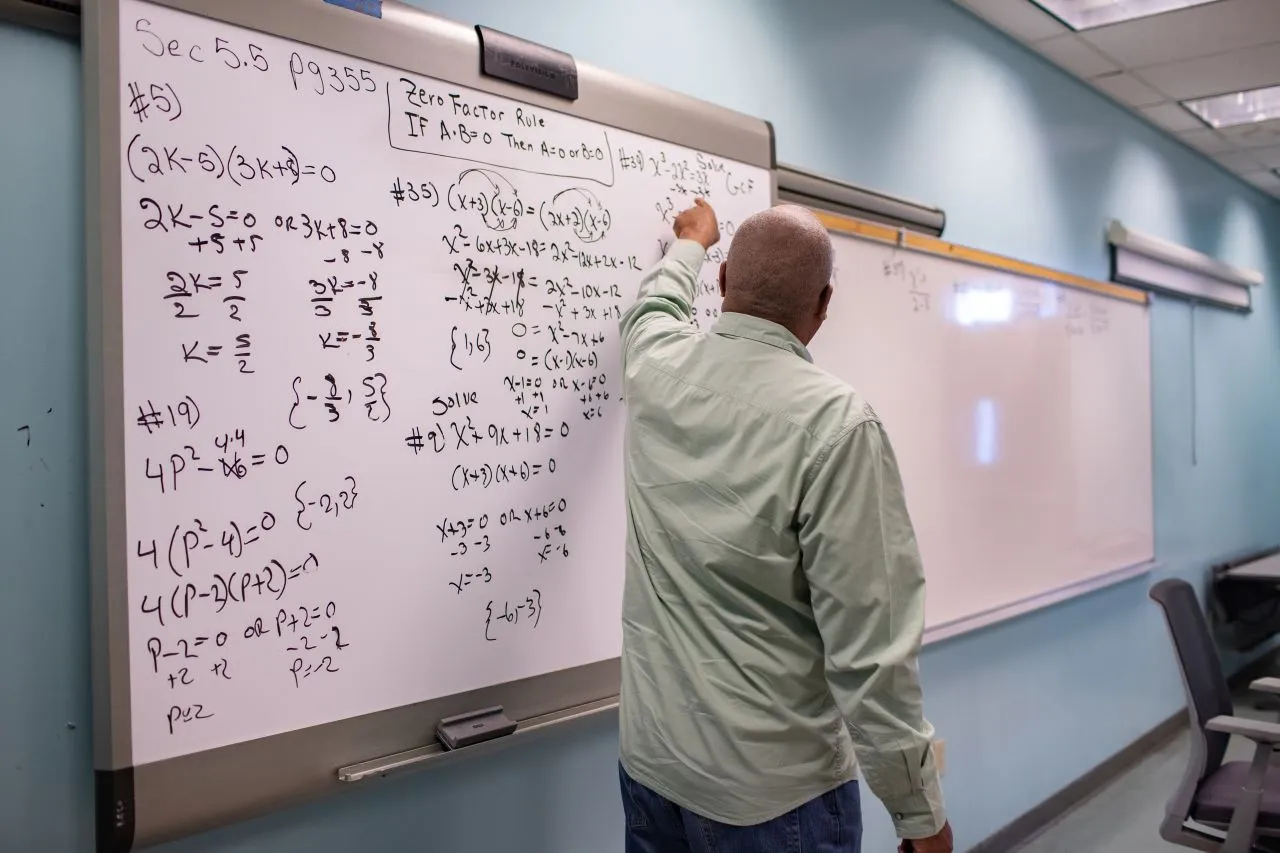 Sec 5.5 pg355
Zero Factor Rule
IF A·B=0 Then A=0 or B=0
#5)
(2K-5)(3K+8)=0
2K-5=0 OR 3K+8=0
+5 +5 -8 -8
2K=5 3K=-8
2 2 3 3
K=5/2 K=-8/3
{-8/3, 5/2}
#19)
4·4
4P²-16=0
{-2,2}
4(P²-4)=0
4(P-2)(P+2)=0
P-2=0 OR P+2=0
+2 +2 -2 -2
P=2 P=-2
#35) (x+3)(x-6)=(2x+2)(x-6)
x²-6x+3x-18=2x²-12x+2x-12
x²-3x-18=2x²-10x-12
-x²+3x+18 -x²+3x+18
0=x²-7x+6
{1,6}
0=(x-1)(x-6)
x-1=0 OR x-6=0
+1 +1 +6 +6
x=1 x=6
Solve
#9) x²+9x+18=0
(x+3)(x+6)=0
x+3=0 OR x+6=0
-3 -3 -6 -6
x=-3 x=-6
{-6,-3}
Solve
x³-2x²=3x
GCF
POLYVISION